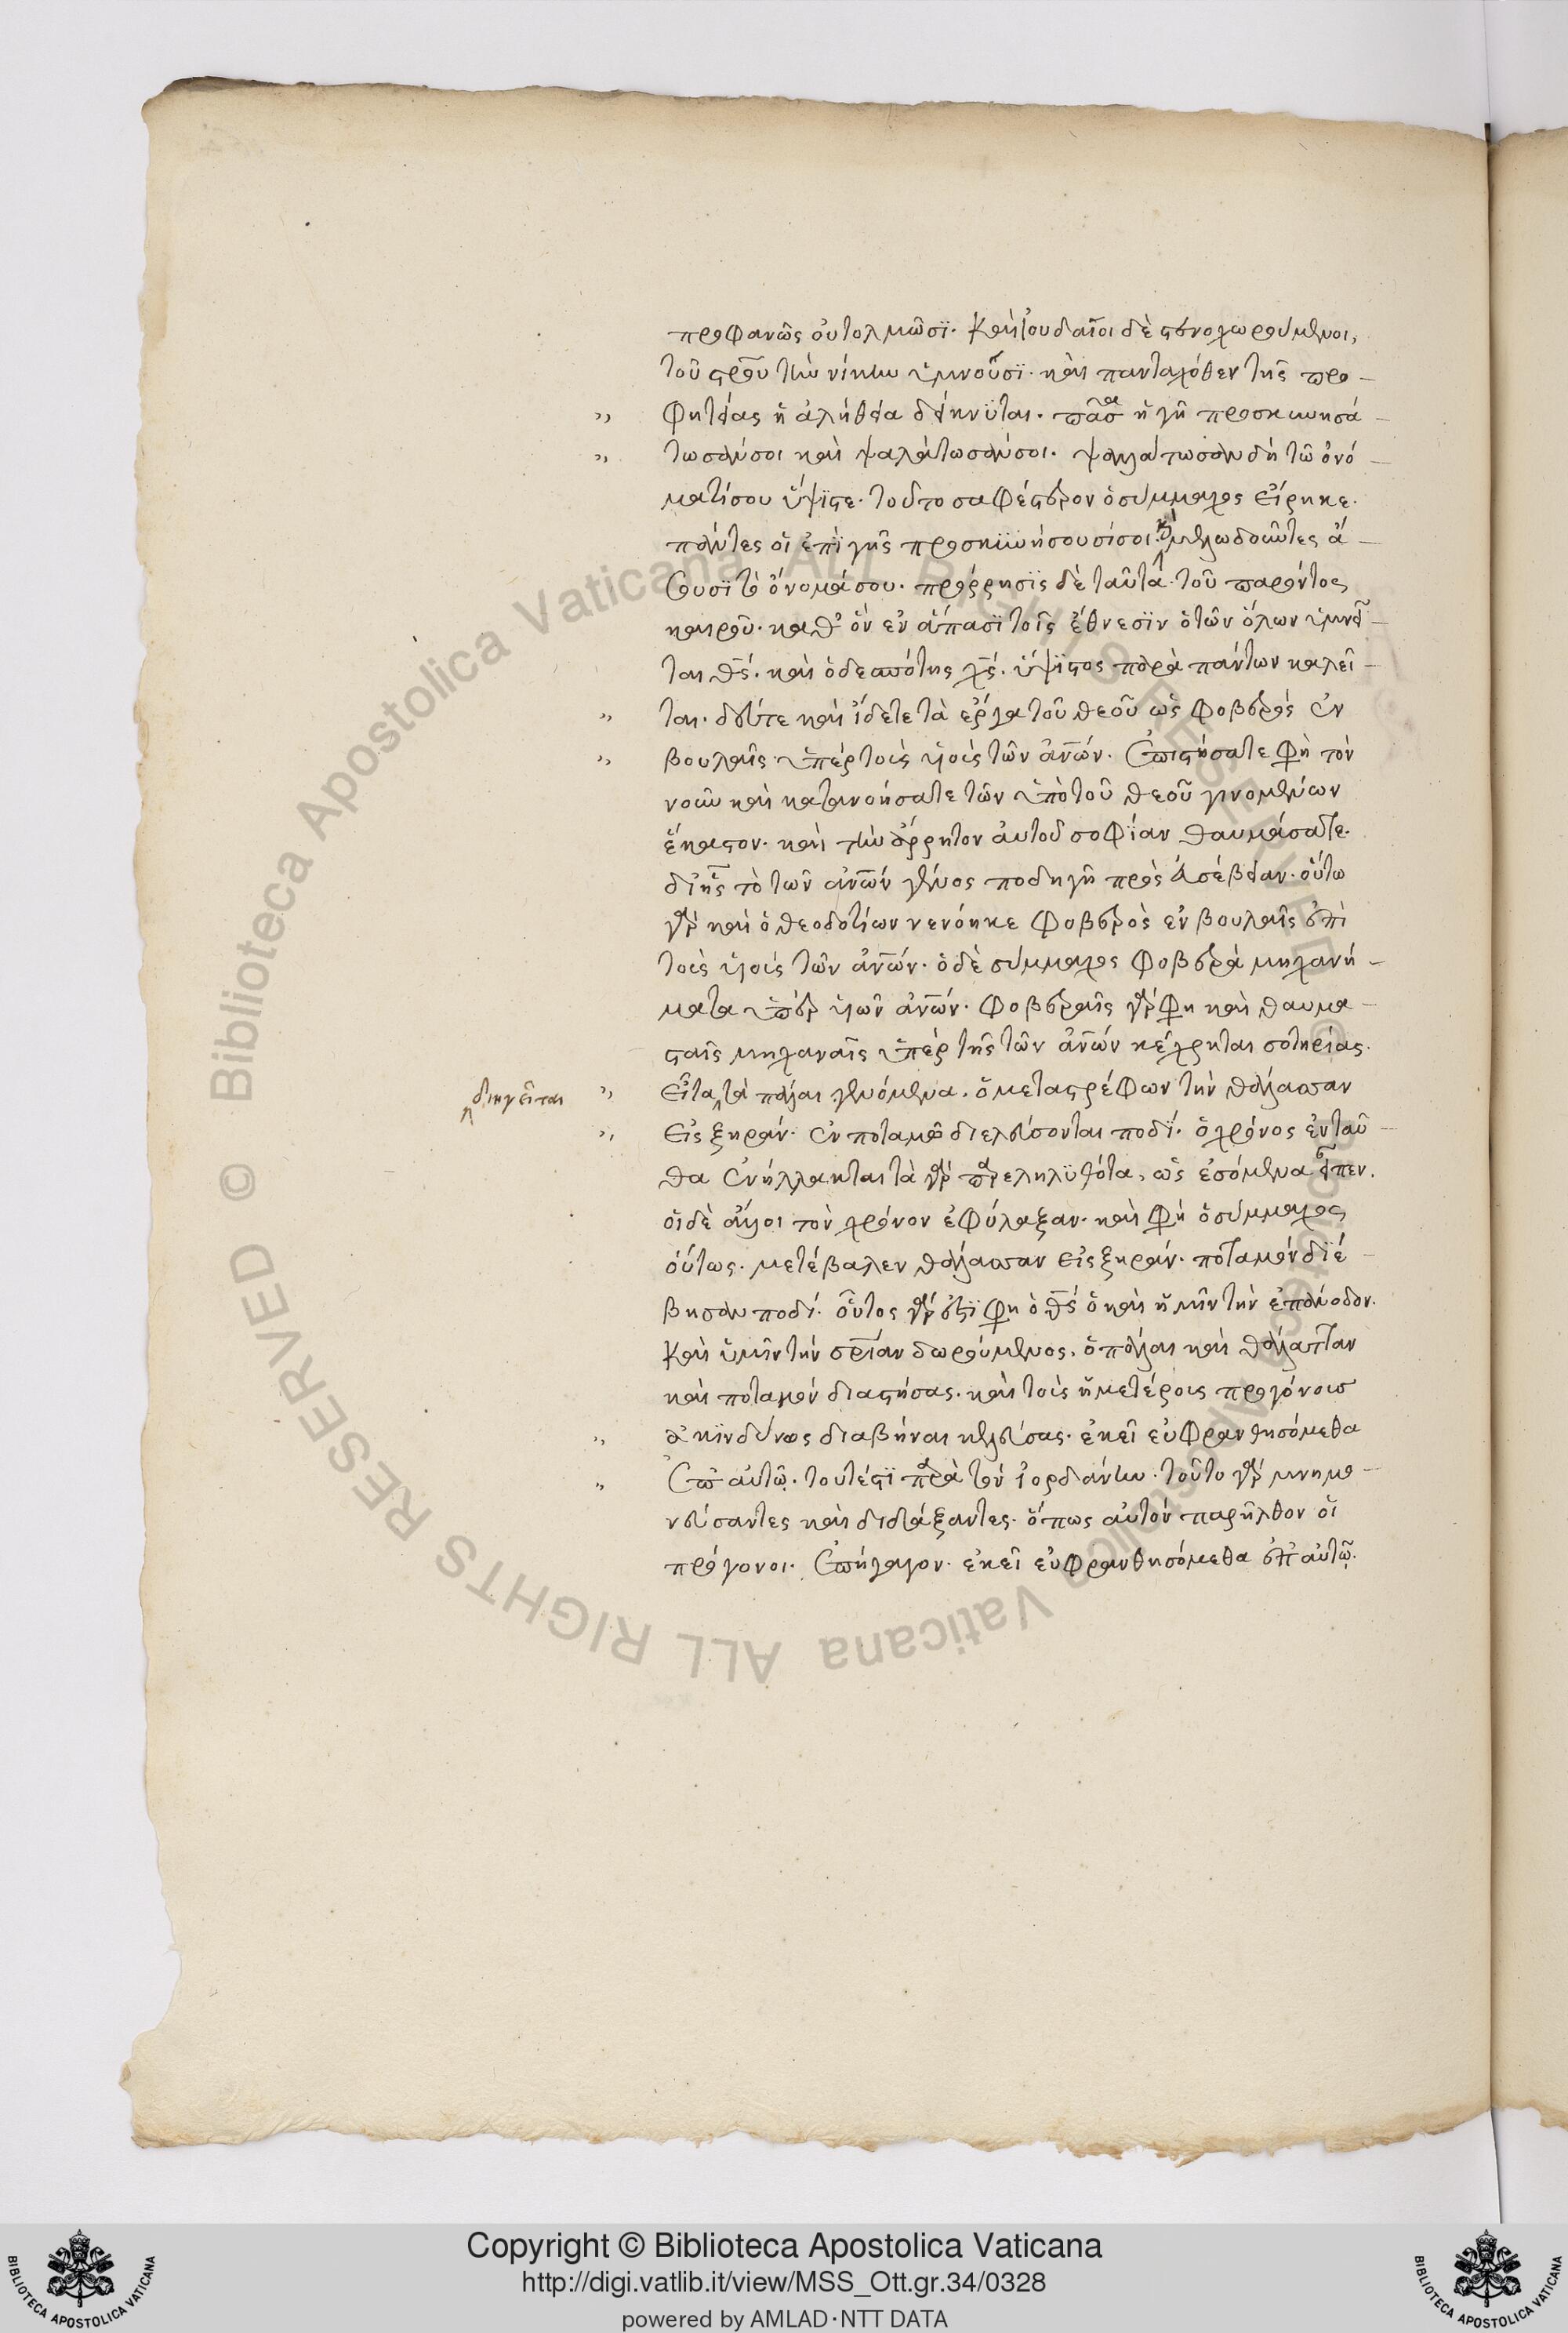 προφανῶς οὐ τολμῶσϊ. καὶ ἰουδαῖοι δὲ στενοχωρούμενοι,
τοῦ σρ̅ου τὴν νίκην ὑμνοῦσϊ. καὶ πανταχόθεν τῆς προ-
,, φητείας ἡ ἀλήθεια δείκνϋται. πᾶσα ἡ γῆ προσκυνησά-
,, τωσάν σοι καὶ ψαλάτωσάν σοι. ψαλάτωσαν δὴ τῶ ὀνό-
ματί σου ὕψϊστε. τοῦτο σαφέστερον ὁ σύμμαχος εἴρηκε.
πάντες οἱ ἐπὶ γῆς προσκϋνήσουσί σοι. καὶ μελωδοῦντες ἄ-
σουσϊ τὸ ὄνομά σου. πρόρρησϊς δὲ ταῦτα τοῦ παρόντος
καιροῦ. καθ' ὃν ἐν ἅπασϊ τοῖς ἔθνεσϊν ὁ τῶν ὅλων ὑμνεῖ-
ται θς̅. καὶ ὁ δεσπότης χς̅. ὕψϊστος παρὰ πάντων καλεῖ-
,, ται. δεῦτε καὶ ἴδετε τὰ ἔργα τοῦ θεοῦ ὡς φοβερὸς ἐν
,, βουλαῖς ὑπὲρ τοὺς υἱοὺς τῶν ἀνω̅ν. ἐπιστήσατε φη τὸν
νοῦν καὶ κατανοήσατε τῶν ὑπὸ τοῦ θεοῦ γινομένων
ἕκαστον. καὶ τὴν ἄρρητον αὐτοῦ σοφϊαν θαυμάσατε.
δι' ἧς τὸ τῶν ἀνω̅ν γένος ποδηγῆ πρὸς ἀσέβειαν. οὕτω
γὰρ καὶ ὁ θεοδοτίων νενόηκε φοβερὸς ἐν βουλαῖς ἐπὶ
τοὺς υἱοὺς τῶν ἀνω̅ν. ὁ δὲ σύμμαχος φοβερὰ μηχανή-
ματα ὑπὲρ υἱῶν ἀνω̅ν. φοβεραῖς γάρ φη καὶ θαυμα-
σταῖς μηχαναῖς ὑπὲρ τῆς τῶν ἀνω̅ν κέχρηται σοτηρίας.
διηγεῖται ,, εἶτα τὰ πάλαι γενόμενα. ὁ μεταστρέφων τὴν θάλασσαν
,, εἰς ξηράν. ἐν ποταμῶ διελεύσονται ποδί. ὁ χρόνος ἐνταῦ-
θα ἐνήλλακται τὰ γὰρ παρεληλϋθότα, ὡς ἐσόμενα εἶπεν.
οἱ δὲ ἄλλοι τὸν χρόνον ἐφύλαξαν. καὶ φη ὁ σύμμαχος
οὕτως. μετέβαλεν θάλασσαν εἰς ξηράν. ποταμὸν διέ-
βησαν ποδί. οὗτος γάρ ἐστϊ φη ὁ θς̅ ὁ καὶ ἡμῖν τὴν ἐπάνοδον.
καὶ ὑμῖν τὴν σρ̅ίαν δωρούμενος. ὁ πάλαι καὶ θάλατταν
καὶ ποταμὸν διαστήσας. καὶ τοὺς ἡμετέροις προγόνοισ
,, ἀκϊνδύνως διαβῆναι κελεύσας. ἐκεῖ εὐφρανθησόμεθα
,, ἐπ' αὐτῷ. τουτέστϊ παρὰ τὸν ἰορδάνην. τοῦτο γὰρ μνημο-
νεύσαντες καὶ διδάξαντες. ὅπως αὐτὸν παρῆλθον οἱ
πρόγονοι. ἐπήγαγον. ἐκεῖ εὐφρανθησόμεθα ἐπ' αὐτῷ.
Copyright © Biblioteca Apostolica Vaticana
http://digi.vatlib.it/view/MSS_Ott.gr.34/0328
powered by AMLAD·NTT DATA
BIBLIOTECA APOSTOLICA VATICANA
BIBLIOTECA APOSTOLICA VATICANA
© Biblioteca Apostolica Vaticana ALL RIGHTS RESERVED © Biblioteca Apostolica Vaticana ALL RIGHTS RESERVED